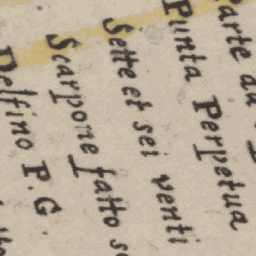 arte da
Punta Perpetua
Sette et sei venti
Scarpone fatto s
Delfino P.G.